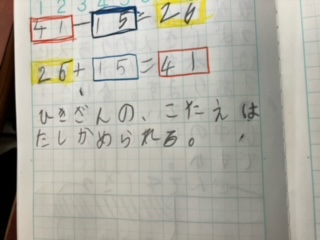 41-15=26
26+15=41
ひきざんの、こたえは
たしかめられる。